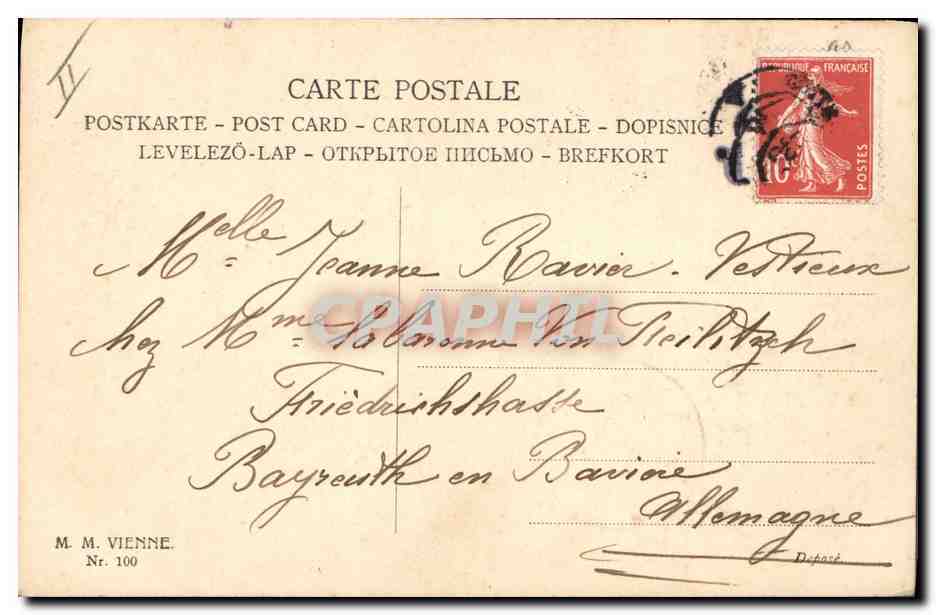 II
CARTE POSTALE
POSTKARTE – POST CARD – CARTOLINA POSTALE – DOPISNICE
LEVELEZŐ-LAP – ОТКРЫТОЕ ПИСЬМО – BREFKORT
RÉPUBLIQUE FRANÇAISE
10c
POSTES
Melle Jeanne Ravier - Vestieux
chez Mme la baronne Von Feilitzsch
Friedrichstrasse
Bayreuth en Bavière
Allemagne
CPAPHIL
M. M. VIENNE.
Nr. 100
Deposé